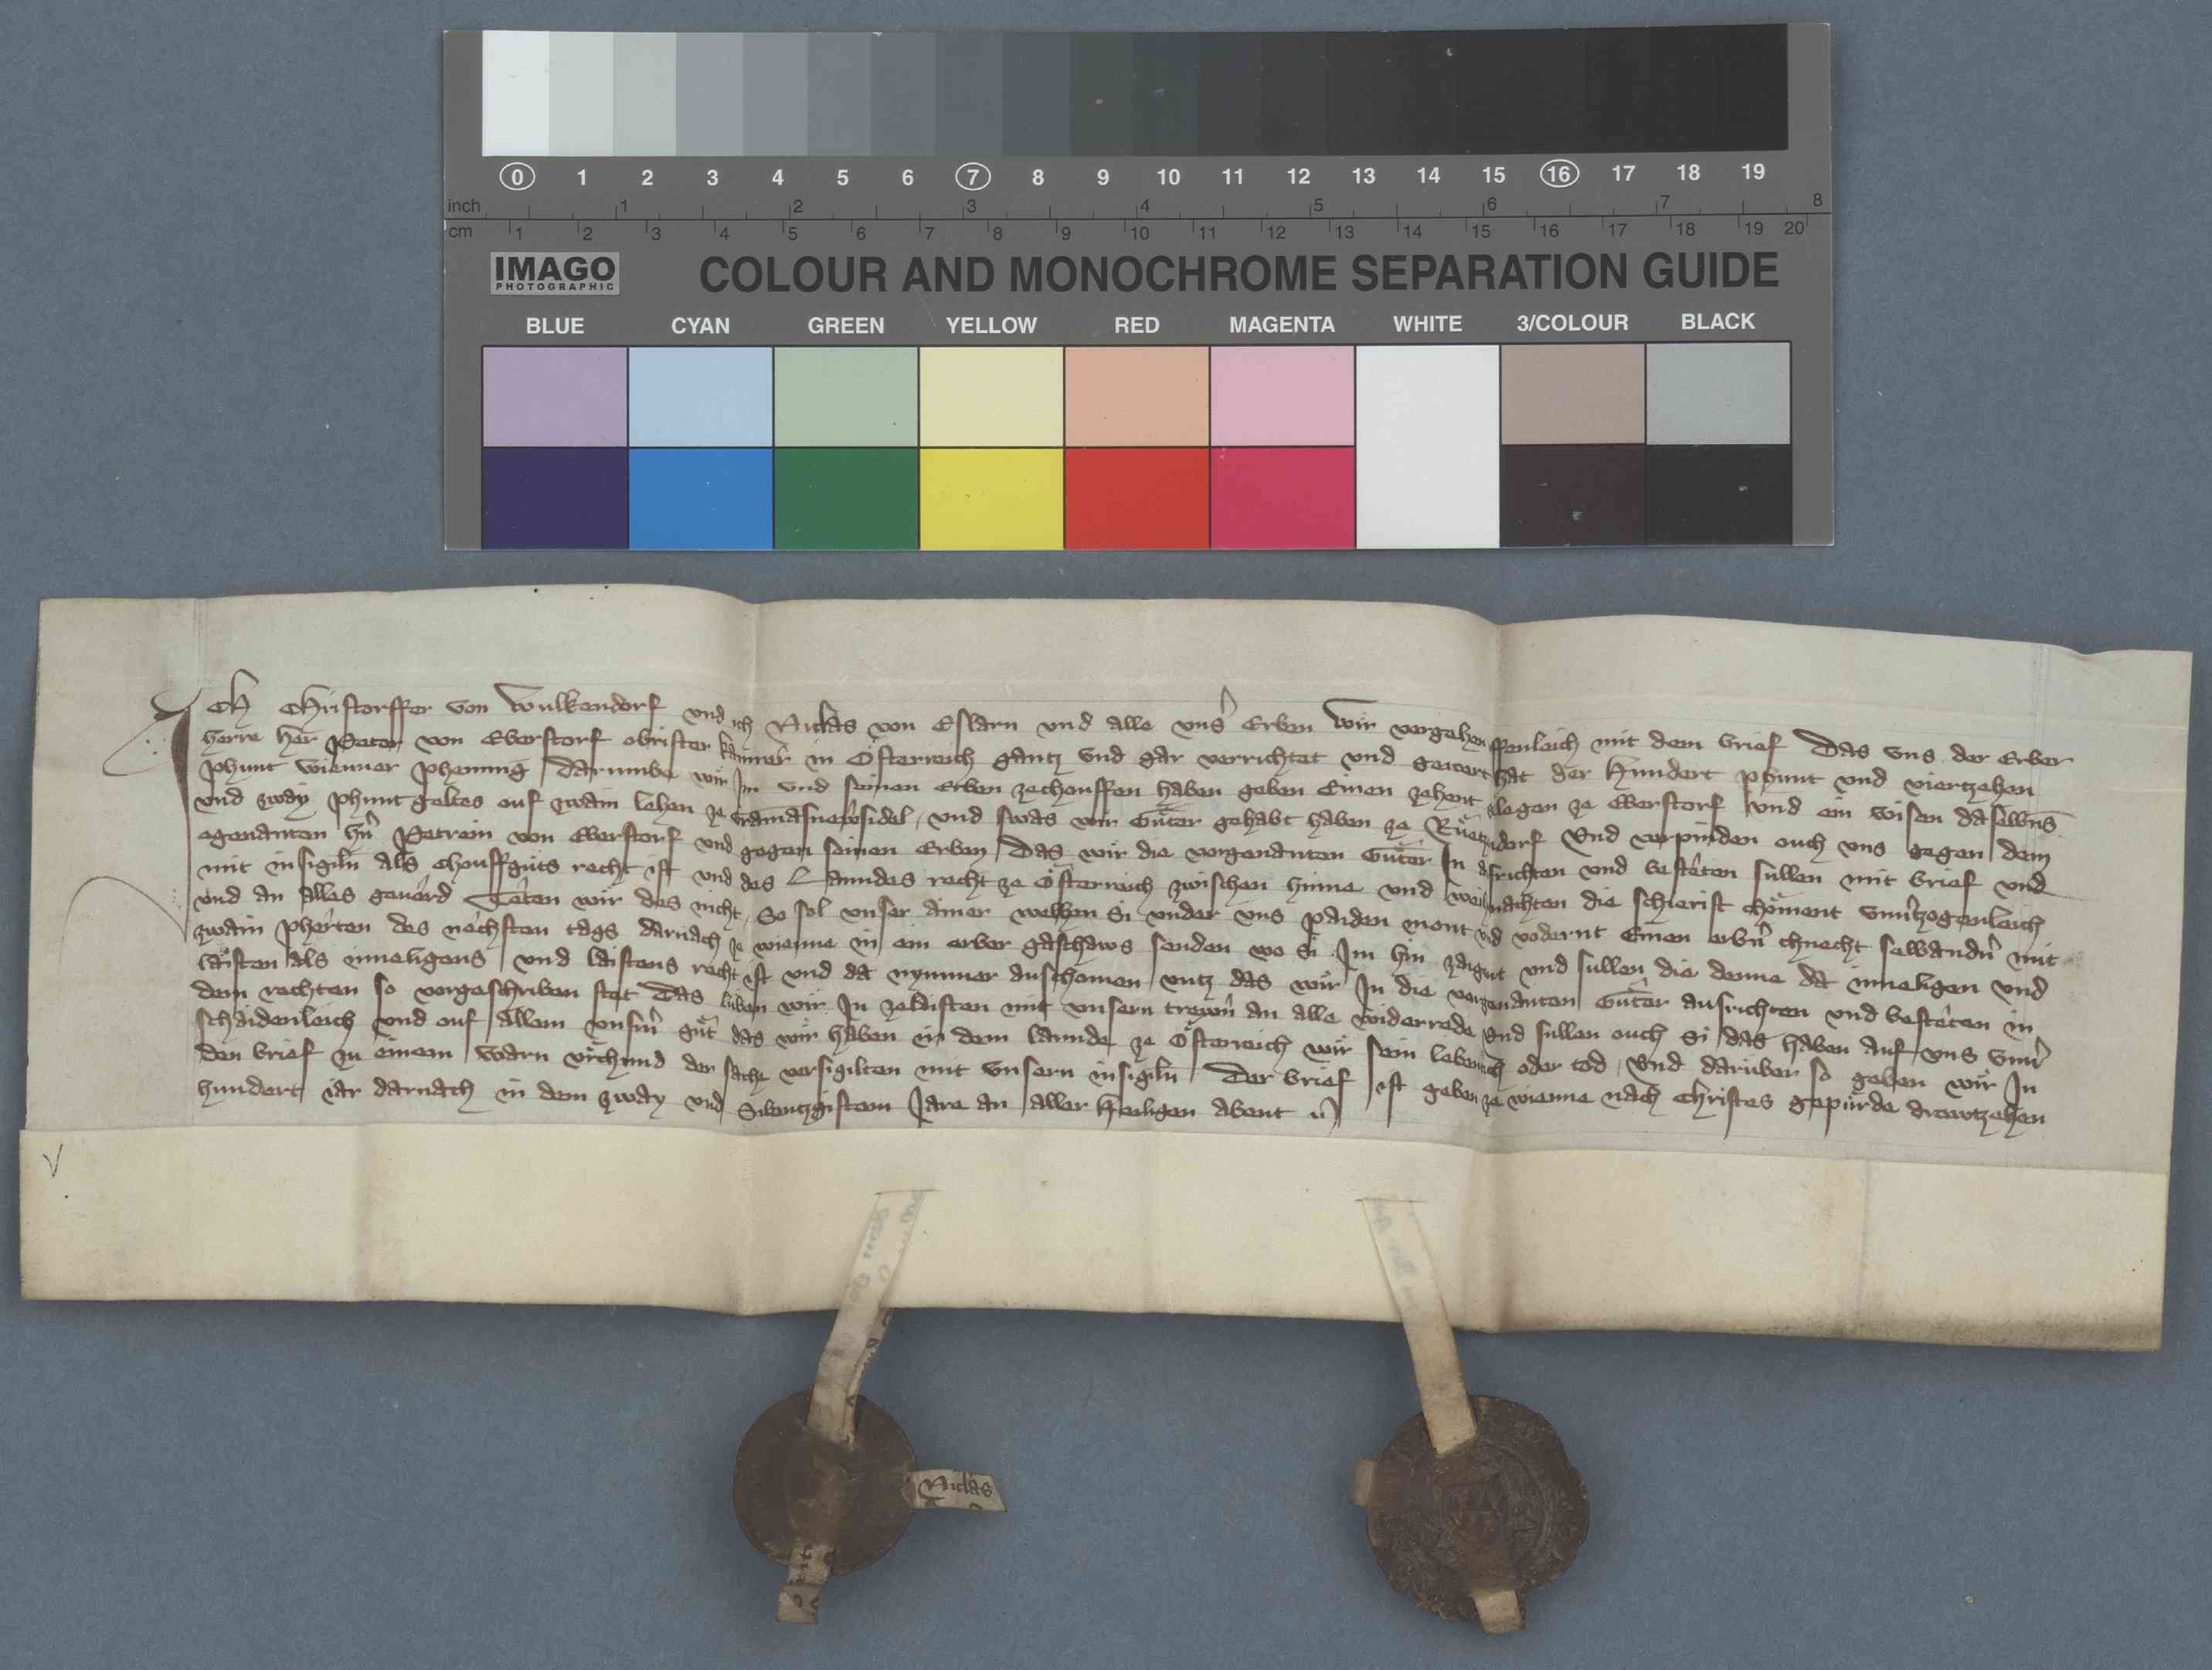 0 1 2 3 4 5 6 7 8 9 10 11 12 13 14 15 16 17 18 19
inch 1 2 3 4 5 6 7 8
cm 1 2 3 4 5 6 7 8 9 10 11 12 13 14 15 16 17 18 19 20
IMAGO
PHOTOGRAPHIC
COLOUR AND MONOCHROME SEPARATION GUIDE
BLUE CYAN GREEN YELLOW RED MAGENTA WHITE 3/COLOUR BLACK
Ich Christorffer von Wulkendorf vnd ich Niclas von Eslarn vnd alle vnser Erben Wir vergehen offenleich mit dem brief Das vns der Erber
herre her Peter von Eberstorf obrister kamrer in Österreich gantz vnd gar verrichtet vnd gewert hat der hundert phunt vnd viertzehen
phunt wienner phenning Darumbe wir Im vnd seinen Erben zechouffen haben geben Einen zehent gelegen ze Eberstorf vnd ein wisen daselbns
vnd zway phunt geltes auf zwain lehen ze Gramasnewsidel, vnd swas wir Güter gehabt haben ze Rüetzndorf Vnd verpinden ouch vns gegen dem
egenanten hern Petrein von Eberstorf vnd gegen seinen Erben Das wir die vorgenanten Güter In ausrichten vnd bestêten süllen mit brief vnd
mit insigiln als chouffgůts recht ist vnd des Lanndes recht ze Österreich zwischen hinne vnd weihnachten die schierist chöment vnuerzogenleich
vnd an alles geuêrd Têten wir des nicht, So sol vnser ainer welhen si vnder vns paiden mont vnd vodernt Einen erbern chnecht selbandern mit
zwain pherten des nêchsten tags darnach ze wienne in ein erber gasthaws senden wo si Im hin zaigent vnd sullen die denne da inneligen vnd
laisten als inneligens vnd laistens recht ist vnd da nymmer auschomen vntz das wir In die vorgenanten Güter ausrichten vnd bestêten in
dem rechten so vorgeschriben stet Das luben wir In zelaisten mit vnsern trewn an alle widerrede Vnd sullen ouch si das haben auf vns vnuer
schaidenleich vnd auf allem vnserm gůt das wir haben in dem lannde ze Österreich wir sein lebentich oder tod, Vnd darüber so geben wir In
den brief zu einem warn vrchund der sache versigilten mit vnsern insigiln Der brief ist geben ze wienne nach Christes gepürde drewtzehen
hundert iar darnach in dem zway vnd Sibentzgistem Jare an aller Heiligen abent
V
Niclas